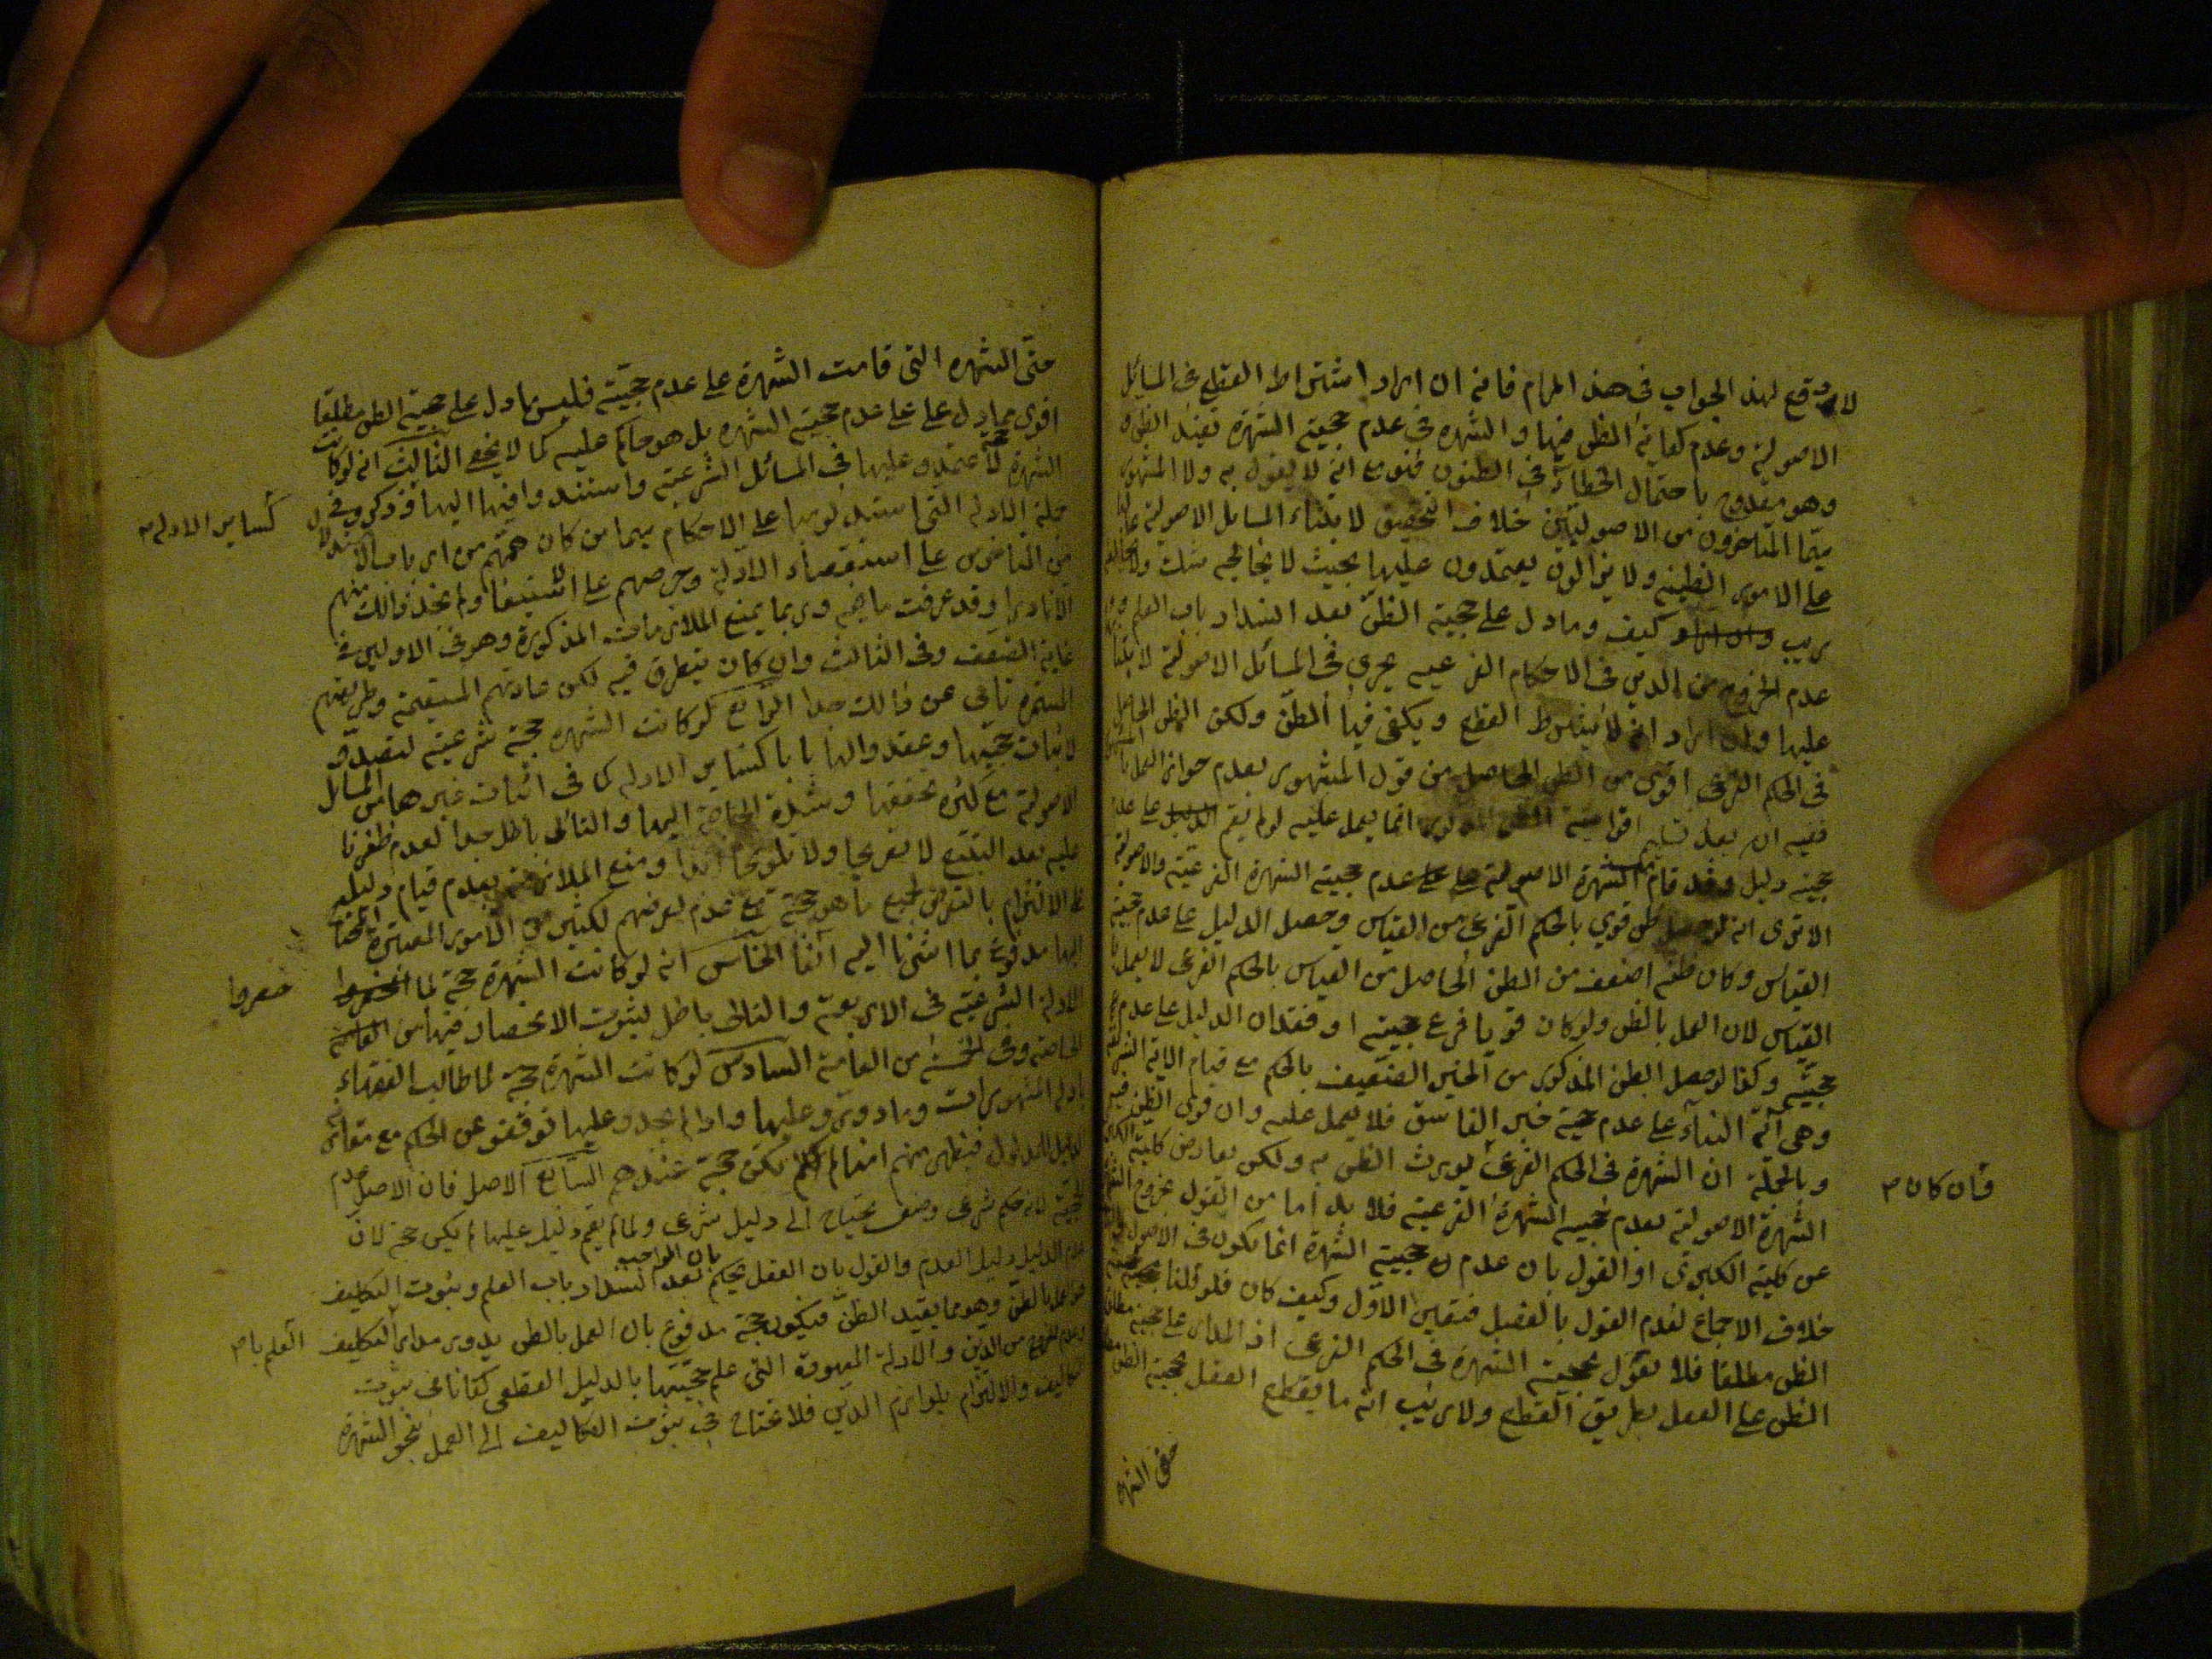 لا وقع لهذا الجواب في هذا المرام فانه ان اراد اشتراط القطع في المسائل
الاصولية وعدم كفاية الظن فيها والشهرة في عدم حجية الشهرة تفيد الظن
وهو مقدوح باحتمال الخطاء في الظنون فنوع انه لا يقول به ولا المشهور
سيما المتاخرون من الاصوليين خلاف التحقيق لابتناء المسائل الاصولية
على الامور الظنية ولا يزالون يعتمدون عليها بحيث لا يخالجه شك ولا
ريب كيف وما دل على حجية الظن بعد انسداد باب العلم
عدم الخروج من الدين في الاحكام الفرعيه يجري في المسائل الاصولية
عليها وان اراد انه لا يشترط القطع ويكفى فيها الظن ولكن الظن الحاصل
في الحكم الفرعي اقوى من الظن الحاصل من قول المشهور بعدم جواز العمل
ففيه ان بعد تسليم اقوائية الظن انما يعمل عليه لو لم يقم الدليل على عدم
حجيته دليل وقد قام الشهرة الاصولية على عدم حجية الشهرة الفرعية والاصولية
الا ترى انه لو حصل ظن قوي بالحكم الفرعي من القياس وحصل الدليل على عدم حجية
القياس وكان ظنه اضعف من الظن الحاصل من القياس بالحكم الفرعي لا يعمل
القياس لان العمل بالظن ولو كان قويا فرع حجيته او فقدان الدليل على عدم
حجيته وكذا لو حصل الظن المذكور من الخبر الضعيف بالحكم مع قيام الاية
وهي آية النباء على عدم حجية خبر الفاسق فلا يعمل عليه وان قوى الظن فيه
وبالجملة ان الشهرة في الحكم الفرعي يورث الظن به ولكن يعارض كلية
فان كان م
الشهرة الاصولية بعدم حجية الشهرة الفرعية فلا بد اما من القول بخروج
عن كلية الكبرى او القول بان عدم حجية الشهرة انما يكون في الاصول
خلاف الاجماع لعدم القول بالفصل فتعين الاول وكيف كان فلو قلنا بحجية
الظن مطلقا فلا نقول بحجية الشهرة في الحكم الفرعي اذ المدار على حجية
الظن على العقل بطريق القطع ولا ريب انه ما يقطع العقل بحجية الظن
حتى الشهره
حتى الشهره التي قامت الشهرة على عدم حجيته فليس ما دل على حجية الظن مطلقا
اقوى مما دل على عدم حجية الشهره بل هو حاكم عليه كما لا يخفى الثالث انه لو كانت
الشهرة حجة لاعتمدو عليها في المسائل الشرعية واستندوا فيها اليها وذكروه في
كسائر الادلة م
جملة الادلة التي استدلوا بها على الاحكام سيما من كان همتهم من ارباب الاستدلال
من الماضين على استقصاء الادلة وحرصهم على استيفا ولم نجد ذالك منهم
الا نادرا وقد عرفت ما فيه وربما يمنع الملازمات المذكورة وهو في الاولين في
غاية الضعف وفي الثالث وان كان يتطرق فيه لكن عادتهم المستقيمة وطريقتهم
تابى عن ذالك جدا الرابع لو كانت الشهره حجة شرعية لتصدو
لاثبات حجيتها وعقدوا لها بابا كسائر الادلة كما في اثبات غيرها من المسائل
الاصولية مع كثرة تحققها وشدة الحاجة اليها والتالي باطل جدا لعدم ظفرنا
عليه بعد التتبع لا تصريحا ولا تلويحا ومنع الملازمة بعدم قيام دليل
على الالتزام بالتعرض لجميع ما هو حجة مع عدم تعرضهم لكثير من الامور المعتبرة
اليها مدفوع بما اشرنا اليه آنفا الخامس انه لو كانت الشهرة حجة لما
حصروا
الادلة الشرعية في الاربعة والتالي باطل لثبوت الانحصار فيها من
الخاصة وفي الخمسة من العامة السادس لو كانت الشهرة حجة لما طالب الفقهاء
بادلة المشهورات وما دوروعليها واذا لم يجدو عليها توقفو عن الحكم مع
فيظهر منهم انها لم تكن حجة عندهم السابع الاصل فان الاصل عدم
الحجية لانه حكم شرعي وضعي يحتاج الى دليل شرعي ولما لم يقم دليل عليها لم يكن حجة لان
عدم الدليل دليل العدم والقول بان العقل يحكم بعد انسداد باب العلم وثبوت التكليف
بان الواجب
هو عمل بالظن وهو مما يفيد الظن فيكون حجة مدفوع بان العمل بالظن يدور مدار التكليف
العلم با م
من الدين والادلة المعهودة التي علم حجيتها بالدليل القطعي كفانا في ثبوت
التكاليف والالتزام بلوازم الدين فلا نحتاج في ثبوت التكاليف الى العمل بنحو الشهرة